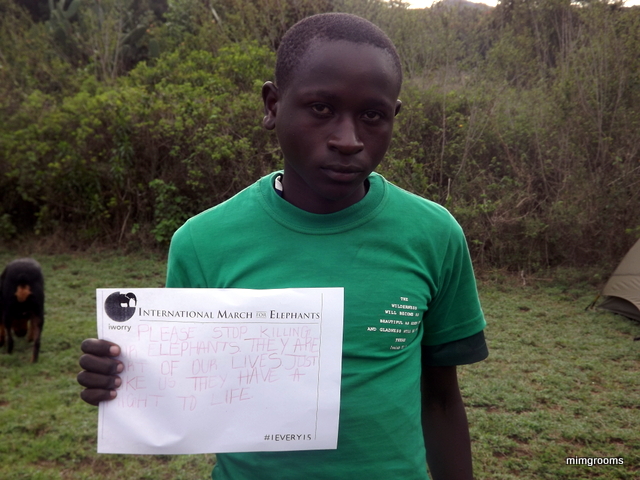 iworry
INTERNATIONAL MARCH FOR ELEPHANTS
PLEASE STOP KILLING
ELEPHANTS THEY ARE
OF OUR LIVES JUST
US THEY HAVE A
RIGHT TO LIFE
#1EVERY15
THE
WILDERNESS
WILL BECOME AS
BEAUTIFUL AS
AND GLADNESS WILL
mimgrooms